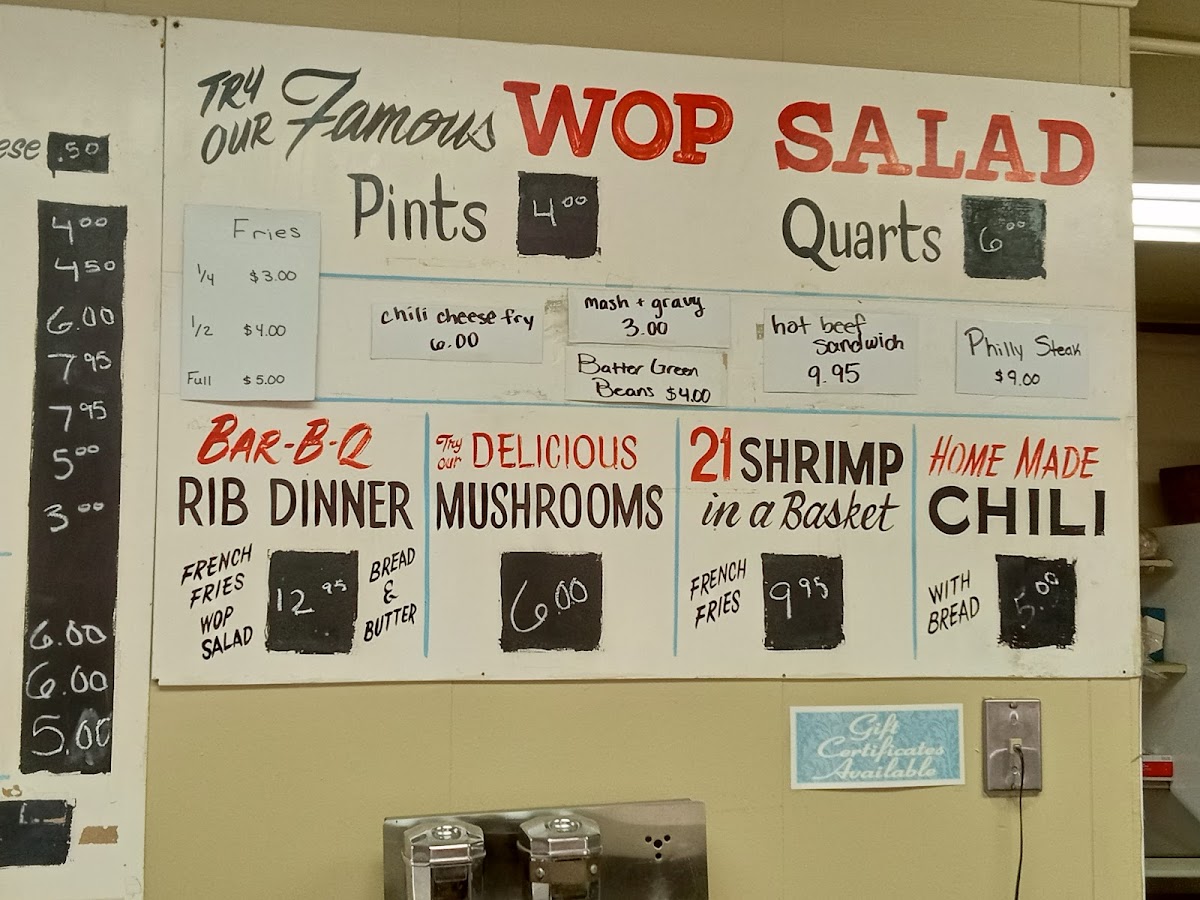 ese .50
4 00
4 50
6.00
7 95
7 95
5 00
3 00
6.00
6.00
5.00
TRY OUR Famous WOP SALAD
Pints 4 00 Quarts 6 00
Fries
1/4 $3.00
1/2 $4.00
Full $5.00
chili cheese fry
6.00
mash + gravy
3.00
Batter Green
Beans $4.00
hot beef
sandwich
9.95
Philly Steak
$9.00
BAR-B-Q
RIB DINNER
FRENCH
FRIES
WOP
SALAD
12 95
BREAD
&
BUTTER
Try our DELICIOUS
MUSHROOMS
6.00
21 SHRIMP
in a Basket
FRENCH
FRIES
9 95
HOME MADE
CHILI
WITH
BREAD
5.00
Gift
Certificates
Available